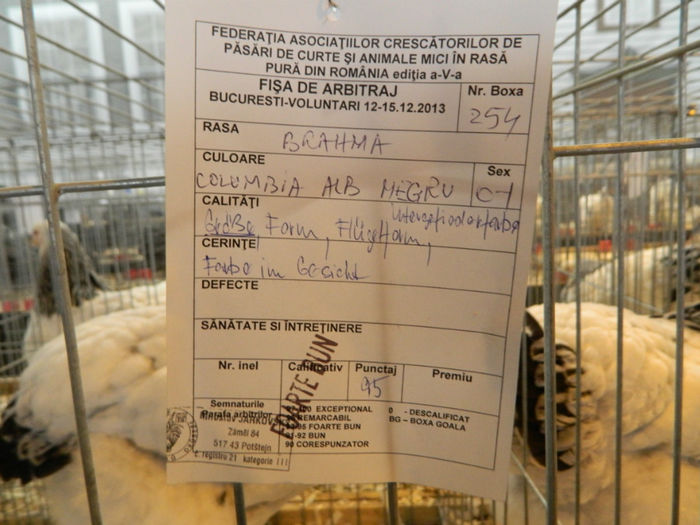 FEDERAŢIA ASOCIAŢIILOR CRESCĂTORILOR DE
PĂSĂRI DE CURTE ŞI ANIMALE MICI ÎN RASĂ
PURĂ DIN ROMÂNIA ediţia a-V-a
FIŞA DE ARBITRAJ
BUCURESTI-VOLUNTARI 12-15.12.2013
Nr. Boxa
254
RASA
BRAHMA
CULOARE
COLUMBIA ALB NEGRU
Sex
0-1
CALITĂŢI
Größe Form, Flügelform,
CERINŢE
Farbe im Gesicht
DEFECTE
SĂNĂTATE SI ÎNTREŢINERE
Nr. inel Calificativ Punctaj Premiu
FOARTE BUN
95
Semnaturile
Parafa arbitrilor
JARKOV
Zámĕl 84
517 43 Potštejn
č. registru 21 kategorie III
EXCEPTIONAL
REMARCABIL
FOARTE BUN
92 BUN
90 CORESPUNZATOR
0 - DESCALIFICAT
BG – BOXA GOALA